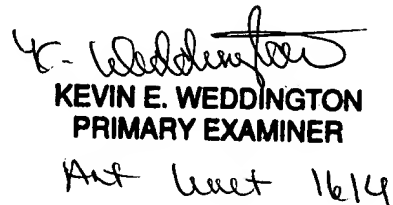 K. Weddington
KEVIN E. WEDDINGTON
PRIMARY EXAMINER
Art Unit 1614